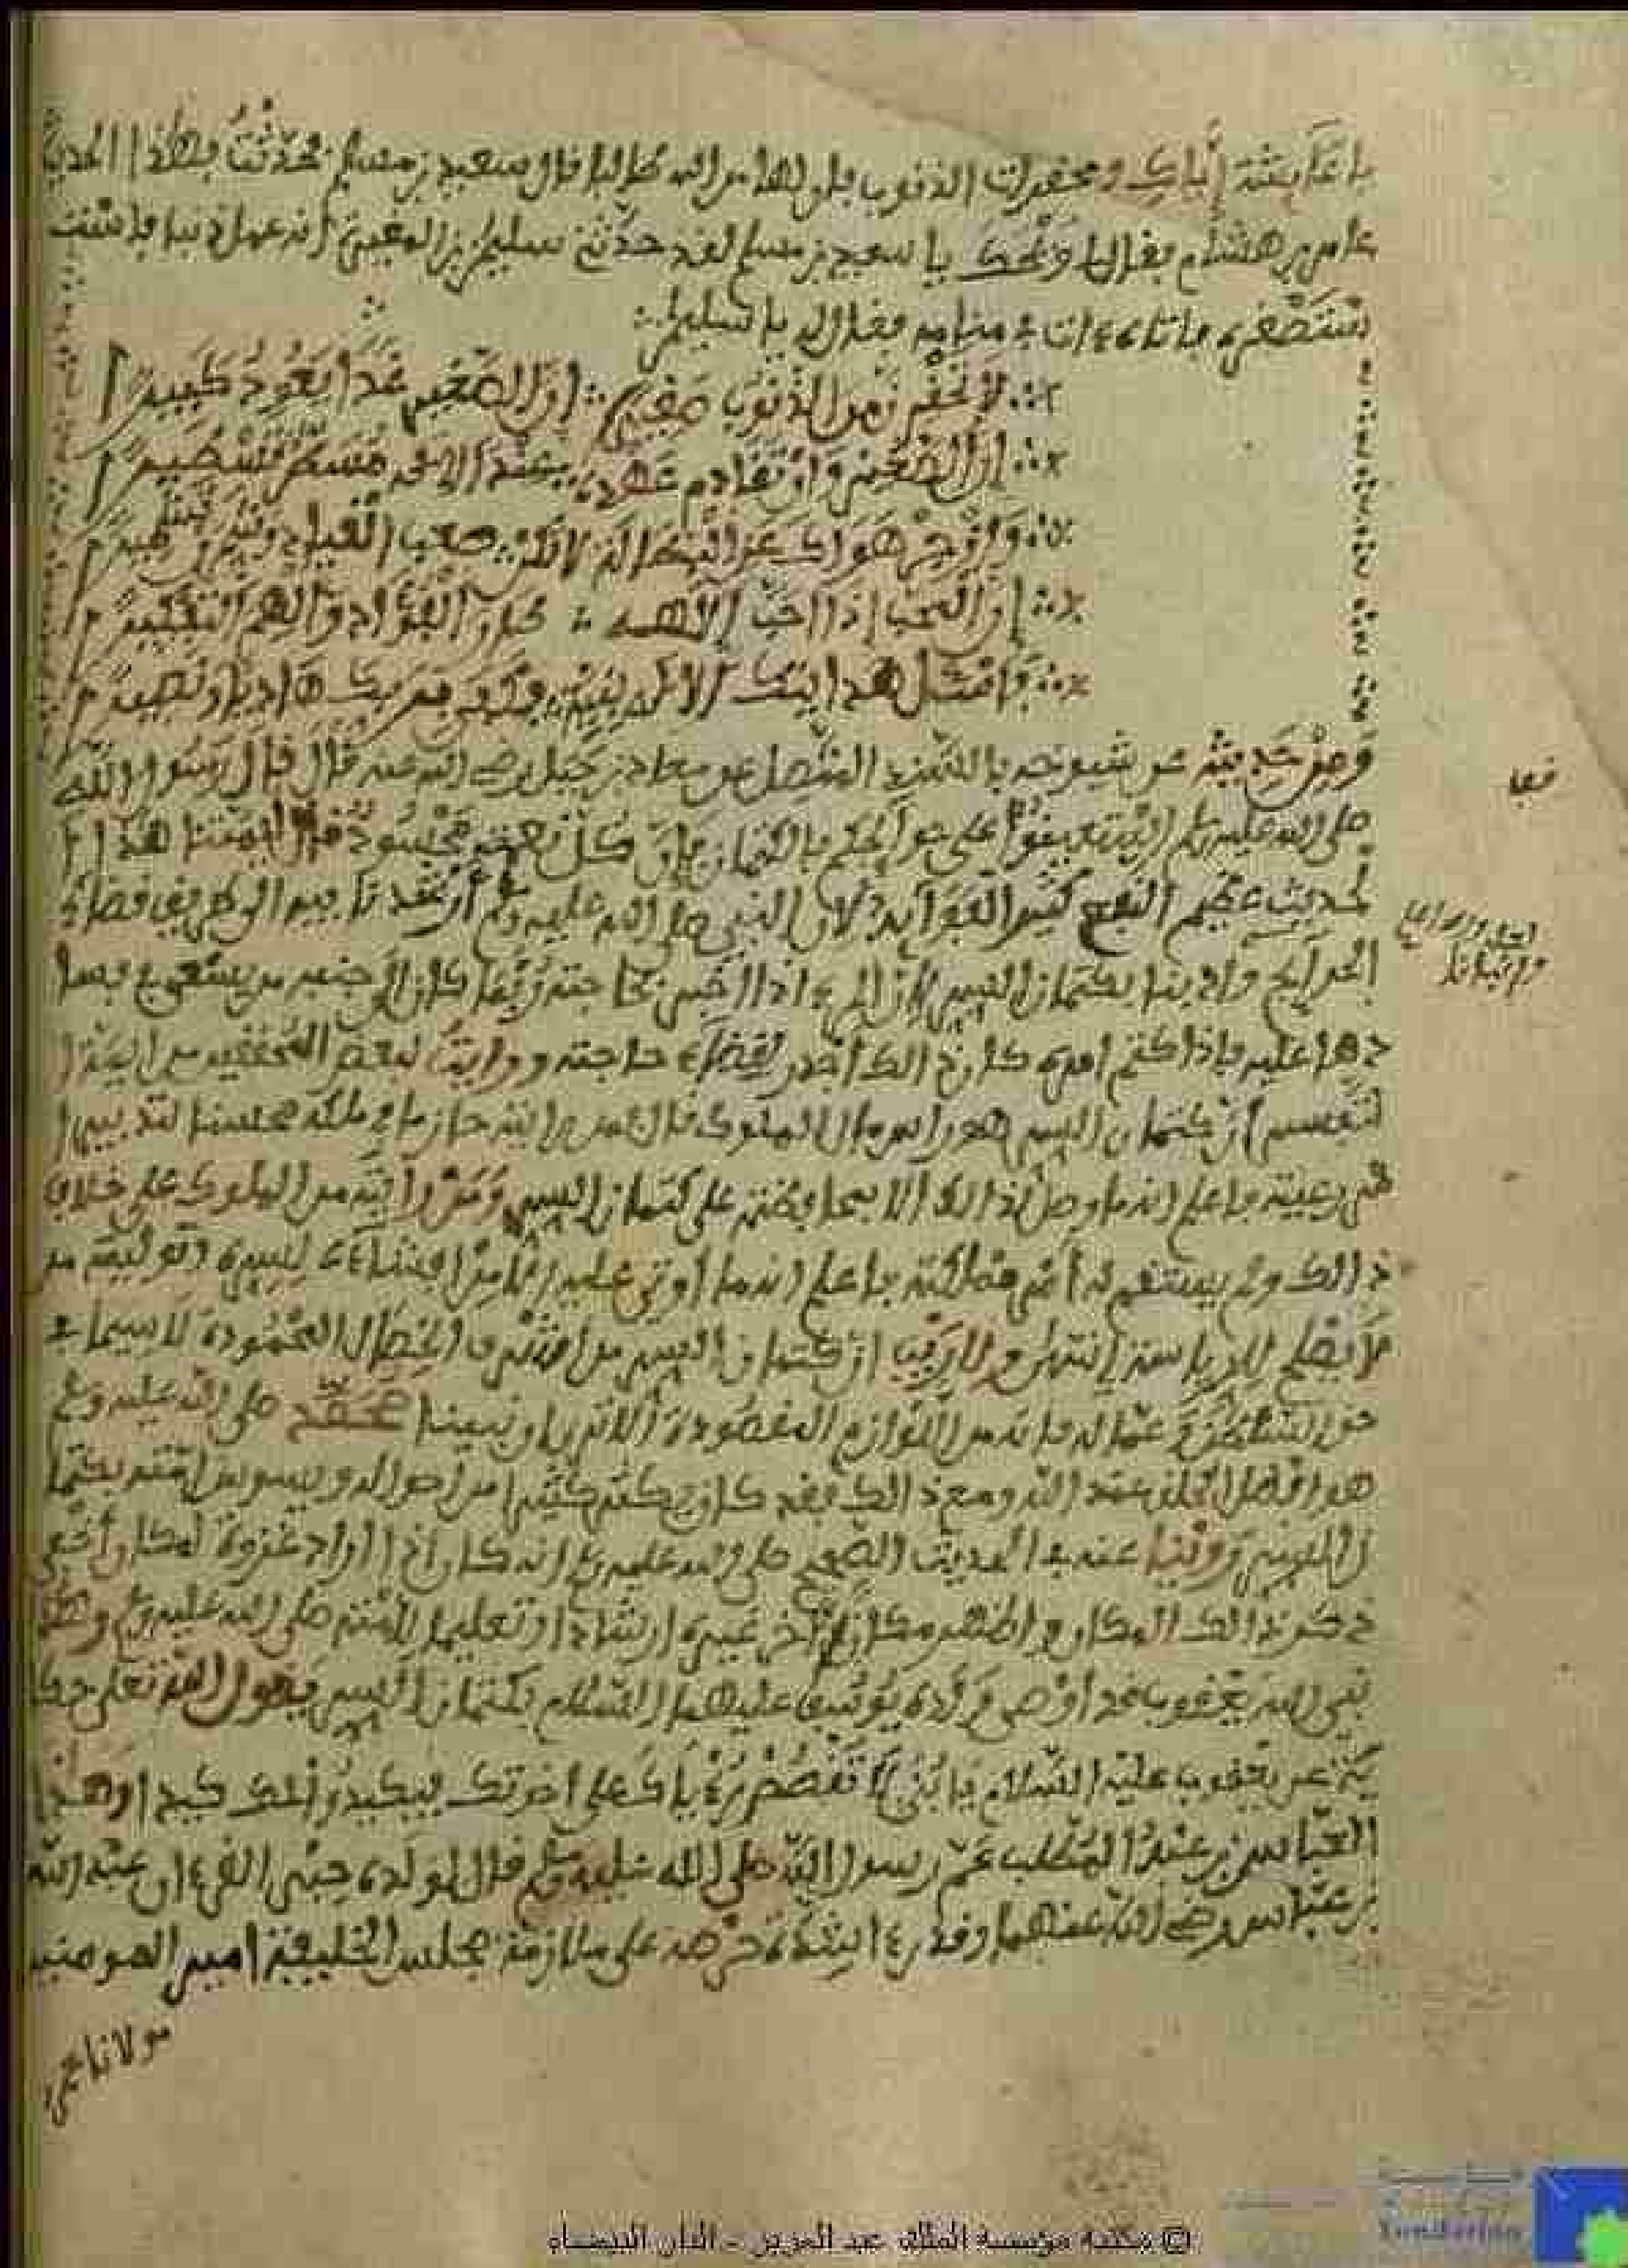 يا عائشة إياك ومحقرات الذنوب فإن لها من الله طالبا قال سعيد بن مسلم فحدثت بهذا الحديث
عامر بن هشام فقال لي ويحك يا سعيد بن مسلم لقد حدثني سليمن بن المغيرة أنه عمل ذنبا فاستـ
ستصغره فأتاه ءات في منامه فقال له يا سليمن
لا تحقرن من الذنوب صغيرا إن الصغير غدا يعود كبيرا
إن الصغير وإن تقادم عهده عند الإله مسطر تسطيرا
وازجر هواك عن البطالة لا تكن صعب القياد وشمرن تشميرا
إن المحب إذا أحب إلاهه طار الفؤاد وألهم التفكيرا
فاسئل هدايتك الإله بنية فكفى بربك هاديا ونصيرا
ومن حديثه عن شيوخه بالسند المتصل عن معاذ بن جبل رضي الله عنه قال قال رسول الله
صلى الله عليه وسلم استعينوا على حوائجكم بالكتمان فإن كل نعمة محسود قال أيمتنا هذا ا
لحديث عظيم النفع كثير الفوائد لأن النبي صلى الله عليه وسلم أرشدنا فيه إلى طريق قضاء
الحوائج وأدبنا بكتمان السر لأن المرء إذا أخبر بحاجته ربما كان في جنبه من يسعى في فسا
دها عليه فإذا كتم أمره كان ذالك أجدر لقضاء حاجته ورأيت لبعض المحققين من أيمة ا
لتفسير أن كتمان السر هو رأس مال الملوك قال فمن رأيته حازما في ملكه محسنا لتدبير ا
مر رعيته فاعلم أنه ما وصل لذالك إلا بمحافظته على كتمان السر ومن رأيته من الملوك على خلاف
ذالك ولم يستقم له أمر مملكته فاعلم أنه ما أوتي عليه إلا من إفشاءه لسره وتوليته من
لا يصلح للرياسة انتهى ولا ريب أن كتمان السر من أشرف الخصال المحمودة لا سيما في
حق السلطان وعماله فإنه من اللوازم المقصودة ألا ترى أن نبينا محمد صلى الله عليه وسلم
هو أفضل الخلق عند الله ومع ذالك فقد كان يكتم كثيرا من أحواله ويسوس أمته بكتما
ن السر وروينا عنه في الحديث الصحيح صلى الله عليه وسلم أنه كان إذا أراد غزوة لمكان أخفى
ذكر ذالك المكان وأظهر مكانا آخر غيره إرشادا وتعليما لأمته صلى الله عليه وسلم وهذا
نبي الله يعقوب قد أوصى ولده يوسف عليهما السلام بكتمان السر يقول الله تعلى حكا
ية عن يعقوب عليه السلام يا بني لا تقصص رءياك على إخوتك فيكيدوا لك كيدا وهذا
العباس بن عبد المطلب عم رسول الله صلى الله عليه وسلم قال لولده حبر القرءان عبد الله
بن عباس رضي الله عنهما وقد رءا شدة حرصه على ملازمة مجلس الخليفة أمير المومنين
مولانا عمر
© مكتبة مؤسسة الملك عبد العزيز - الدار البيضاء
Fondation